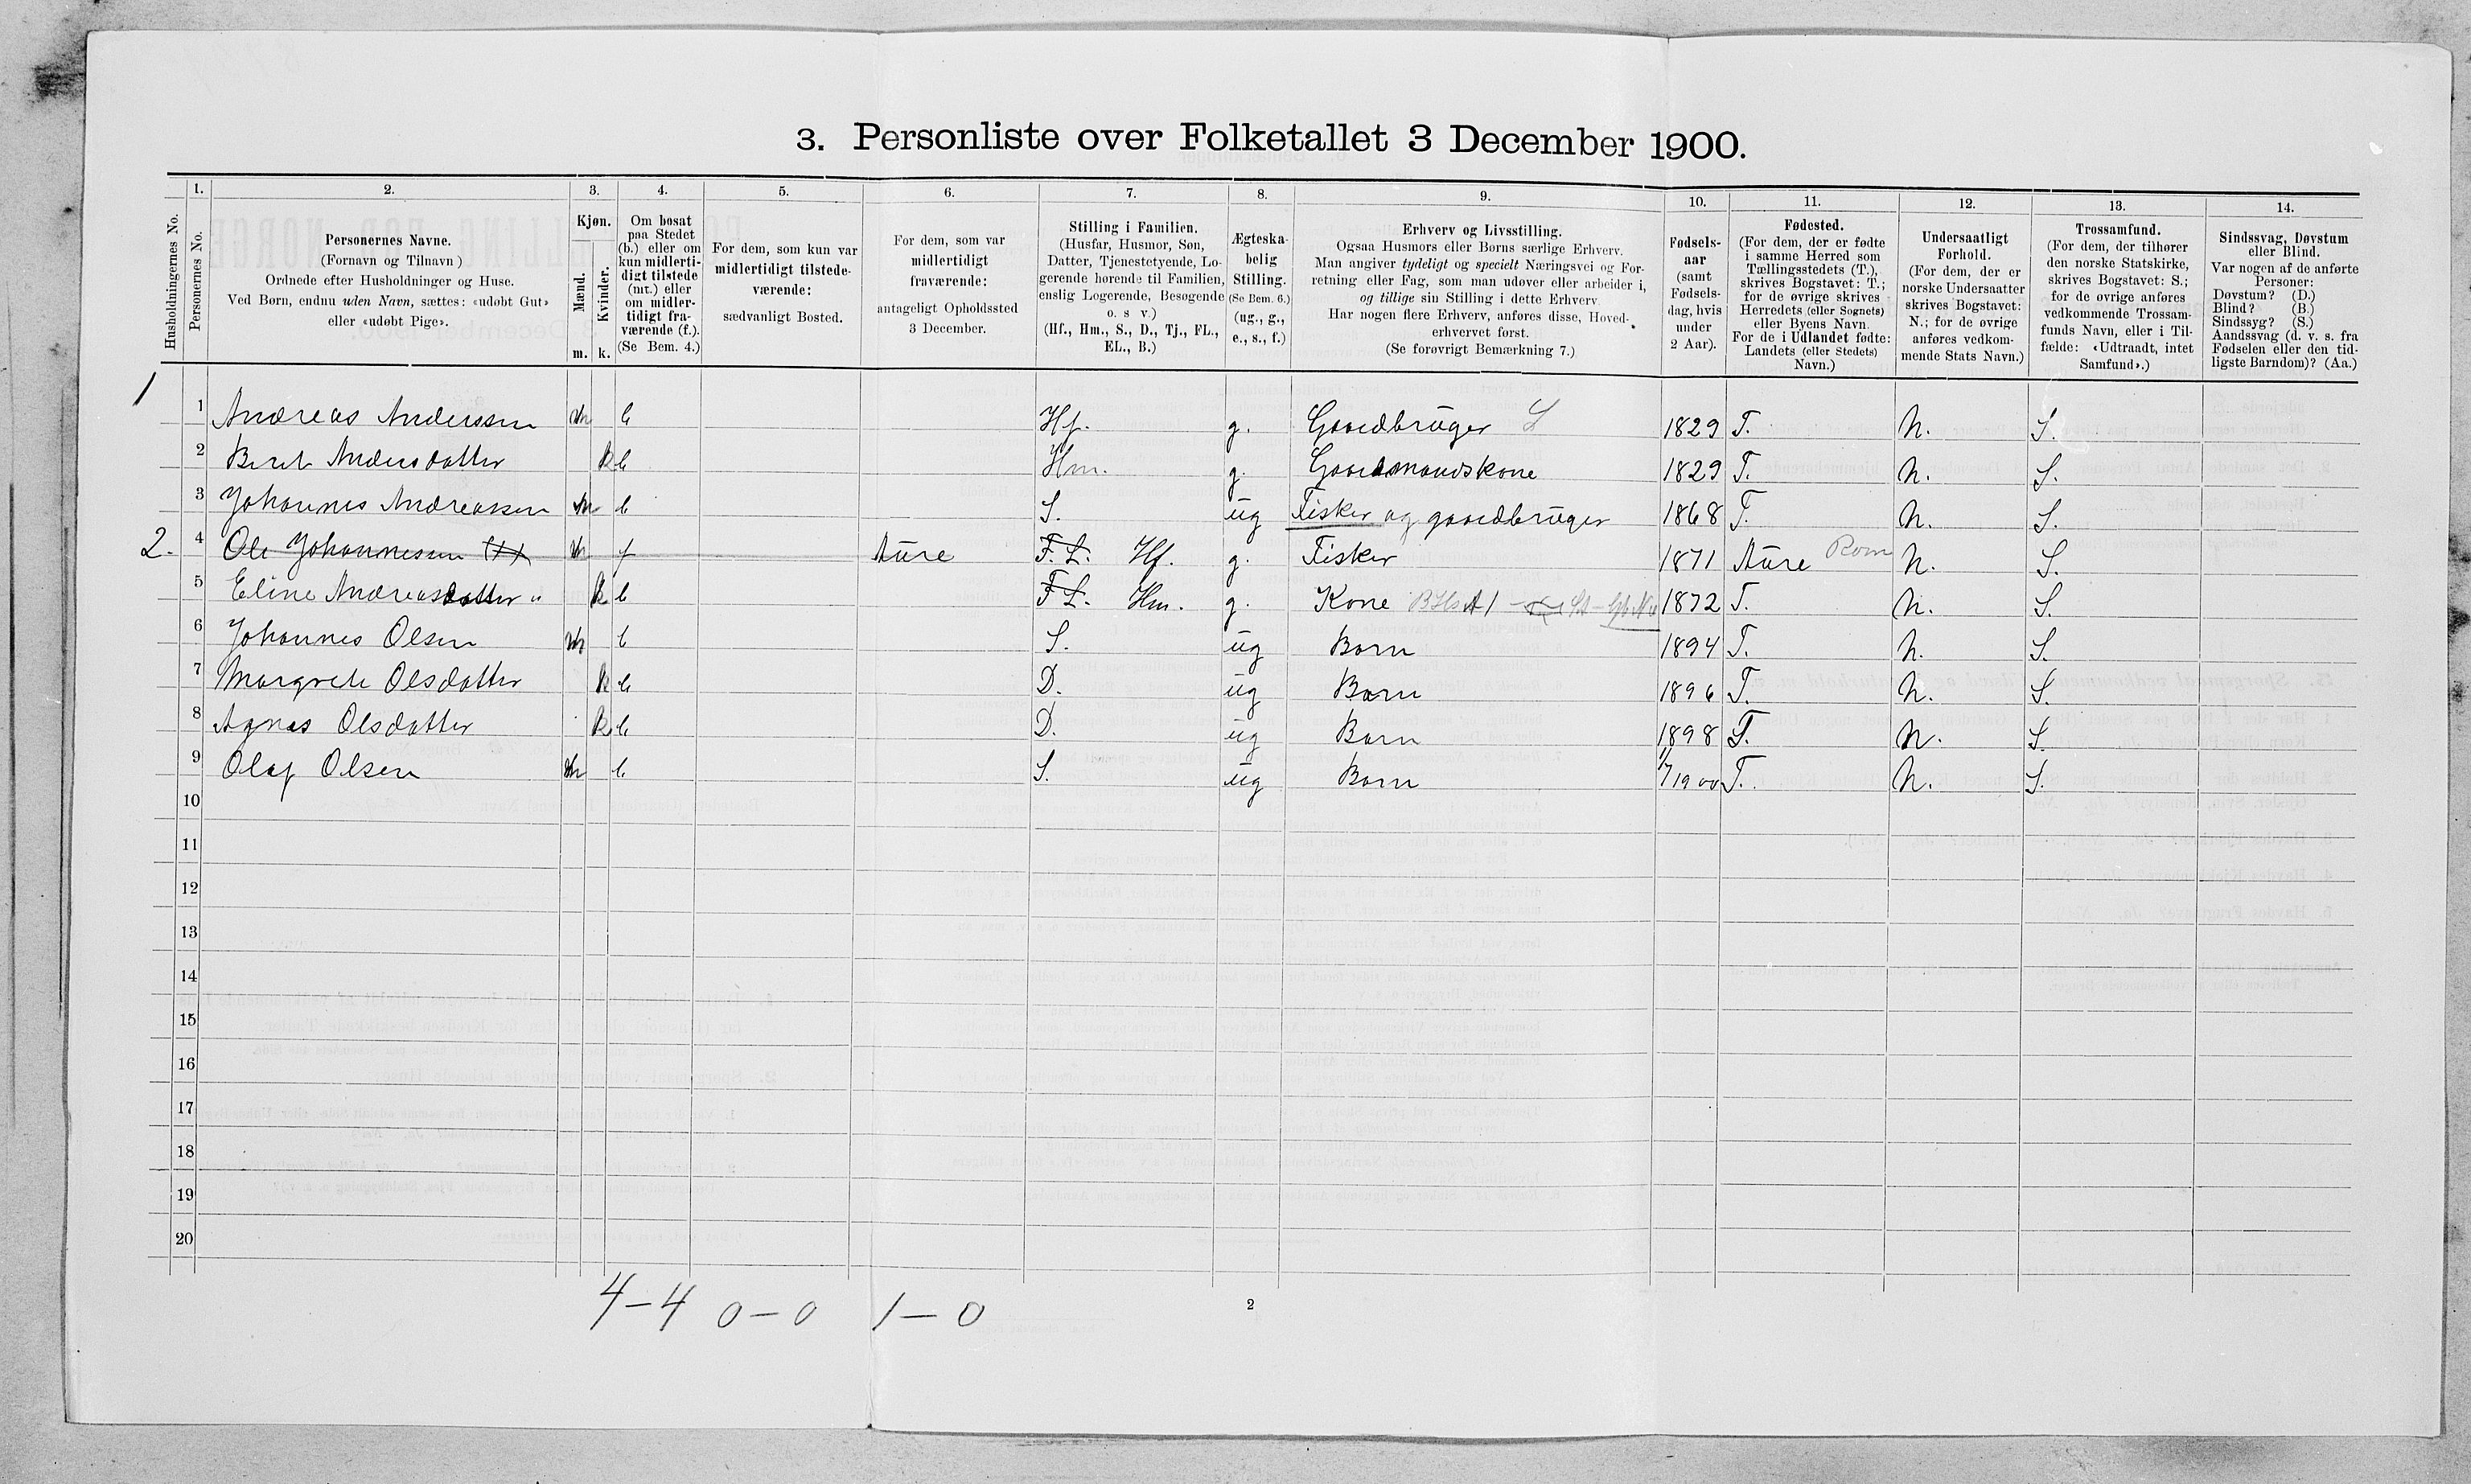 3. Personliste over Folketallet 3 December 1900.
1. 2. 3. 4. 5. 6. 7. 8. 9. 10. 11. 12. 13. 14.
Husholdningernes No.
Personernes No.
Personernes Navne.
(Fornavn og Tilnavn)
Ordnede efter Husholdninger og Huse.
Ved Børn, endnu uden Navn, sættes: «udøbt Gut»
eller «udøbt Pige».
Kjøn.
Mænd.
Kvinder.
m. k.
Om bosat
paa Stedet
(b.) eller om
kun midlerti-
digt tilstede
(mt.) eller
om midler-
tidigt fra-
værende (f.).
(Se Bem. 4.)
For dem, som kun var
midlertidigt tilstede-
værende:
sædvanligt Bosted.
For dem, som var
midlertidigt
fraværende:
antageligt Opholdssted
3 December.
Stilling i Familien.
(Husfar, Husmor, Søn,
Datter, Tjenestetyende, Lo-
gerende hørende til Familien,
enslig Logerende, Besøgende
o. s v.)
(Hf., Hm., S., D., Tj., FL.,
EL., B.)
Ægteska-
belig
Stilling.
(Se Bem. 6.)
(ug., g.,
e., s., f.)
Erhverv og Livsstilling.
Ogsaa Husmors eller Børns særlige Erhverv.
Man angiver tydeligt og specielt Næringsvei og For-
retning eller Fag, som man udøver eller arbeider i,
og tillige sin Stilling i dette Erhverv.
Har nogen flere Erhverv, anføres disse, Hoved-
erhvervet først.
(Se forøvrigt Bemærkning 7.)
Fødsels-
aar
(samt
Fødsels-
dag, hvis
under
2 Aar).
Fødested.
(For dem, der er fødte
i samme Herred som
Tællingsstedets (T.),
skrives Bogstavet: T.;
for de øvrige skrives
Herredets (eller Sognets)
eller Byens Navn.
For de i Udlandet fødte:
Landets (eller Stedets)
Navn.)
Undersaatligt
Forhold.
(For dem, der er
norske Undersaatter
skrives Bogstavet:
N.; for de øvrige
anføres vedkom-
mende Stats Navn.)
Trossamfund.
(For dem, der tilhører
den norske Statskirke,
skrives Bogstavet: S.;
for de øvrige anføres
vedkommende Trossam-
funds Navn, eller i Til-
fælde: «Udtraadt, intet
Samfund».)
Sindssvag, Døvstum
eller Blind.
Var nogen af de anførte
Personer:
Døvstum? (D.)
Blind? (B.)
Sindssyg? (S.)
Aandssvag (d. v. s. fra
Fødselen eller den tid-
ligste Barndom)? (Aa.)
1 1 Andreas Anderssen m b Hf. g. Gaardbruger S 1829 T. N. S.
2 Berit Andersdatter k b Hm. g. Gaardmandskone 1829 T. N. S.
3 Johannes Andreassen m b S. ug Fisker og gaardbruger 1868 T. N. S.
2. 4 Ole Johannesen m f Aure F. L. Hf. g. Fisker 1871 Aure Rom N. S.
5 Eline Andreasdatter " k b F L. Hm. g. Kone 1872 T. N. S.
6 Johannes Olsen m b S. ug Barn 1894 T. N. S.
7 Margrete Olsdatter k b D. ug Barn 1896 T. N. S.
8 Agnes Olsdatter k b D. ug Barn 1898 T. N. S.
9 Olaf Olsen m b S. ug Barn 1/7 1900 T. N. S.
10
11
12
13
14
15
16
17
18
19
20
4-4 0-0 1-0
2